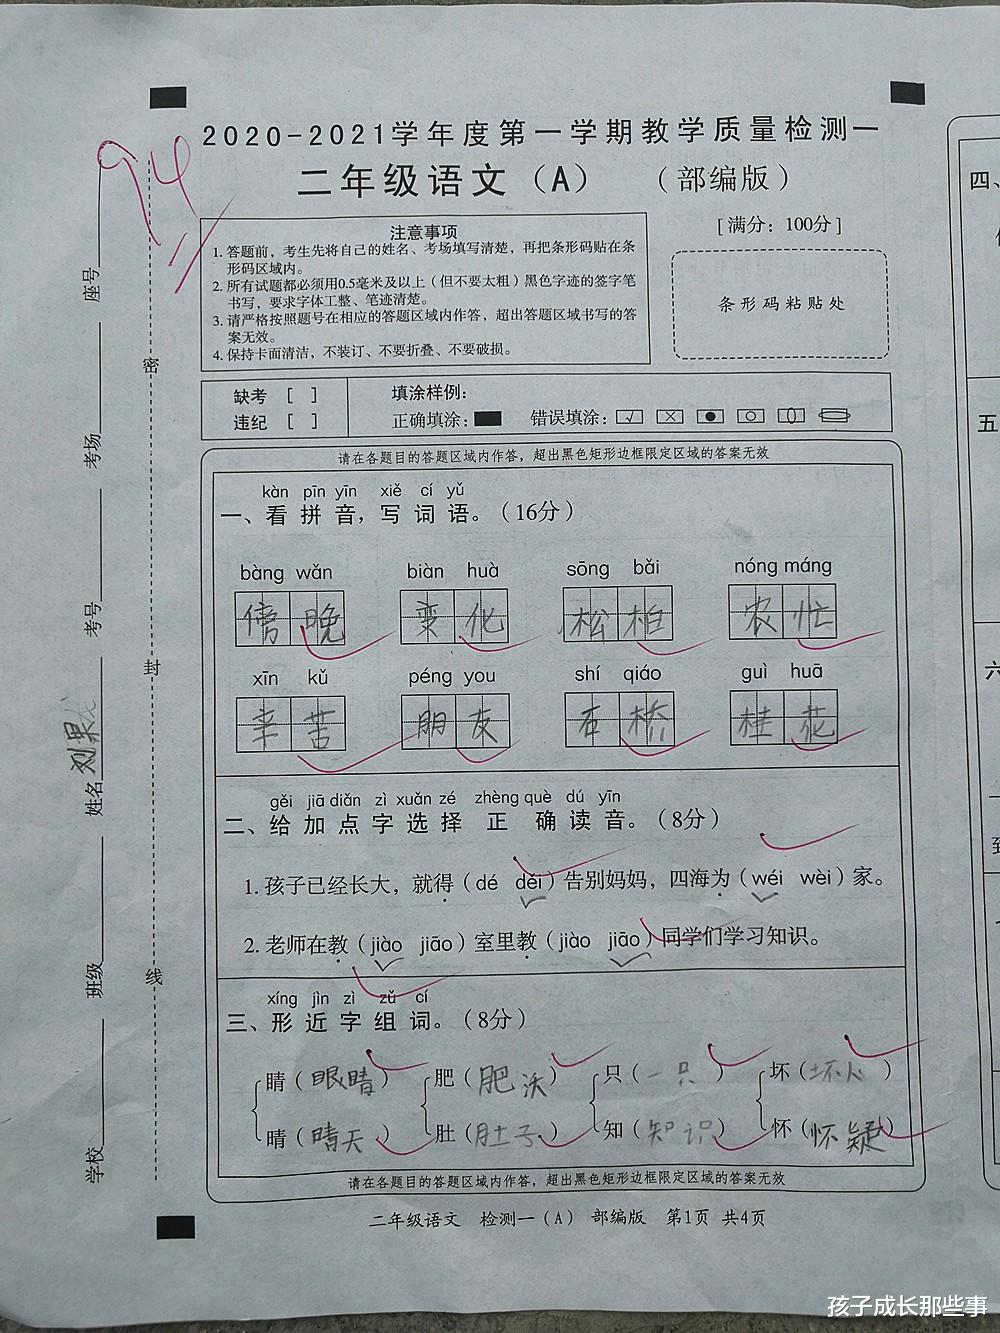 94
2020-2021学年度第一学期教学质量检测一
二年级语文（A） （部编版）
注意事项
1. 答题前，考生先将自己的姓名、考场填写清楚，再把条形码贴在条
形码区域内。
2. 所有试题都必须用0.5毫米及以上（但不要太粗）黑色字迹的签字笔
书写，要求字体工整、笔迹清楚。
3. 请严格按照题号在相应的答题区域内作答，超出答题区域书写的答
案无效。
4. 保持卡面清洁，不装订、不要折叠、不要破损。
[ 满分：100分 ]
条形码粘贴处
缺考 [ ] 填涂样例：
违纪 [ ] 正确填涂： 错误填涂：
请在各题目的答题区域内作答，超出黑色矩形边框限定区域的答案无效
kàn pīn yīn xiě cí yǔ
一、看拼音，写词语。（16分）
bàng wǎn biàn huà sōng bǎi nóng máng
傍晚 变化 松柏 农忙
xīn kǔ péng you shí qiáo guì huā
辛苦 朋友 石桥 桂花
gěi jiā diǎn zì xuǎn zé zhèng què dú yīn
二、给加点字选择正确读音。（8分）
1. 孩子已经长大，就得（dé děi）告别妈妈，四海为（wéi wèi）家。
2. 老师在教（jiào jiāo）室里教（jiào jiāo）同学们学习知识。
xíng jìn zì zǔ cí
三、形近字组词。（8分）
睛（眼睛） 肥（肥沃） 只（一只） 坏（坏人）
晴（晴天） 肚（肚子） 知（知识） 怀（怀疑）
请在各题目的答题区域内作答，超出黑色矩形边框限定区域的答案无效
二年级语文 检测一（A） 部编版 第1页 共4页
学校 班级 姓名 考号 考场 座号
密 封 线
四、
五
六
孩子成长那些事